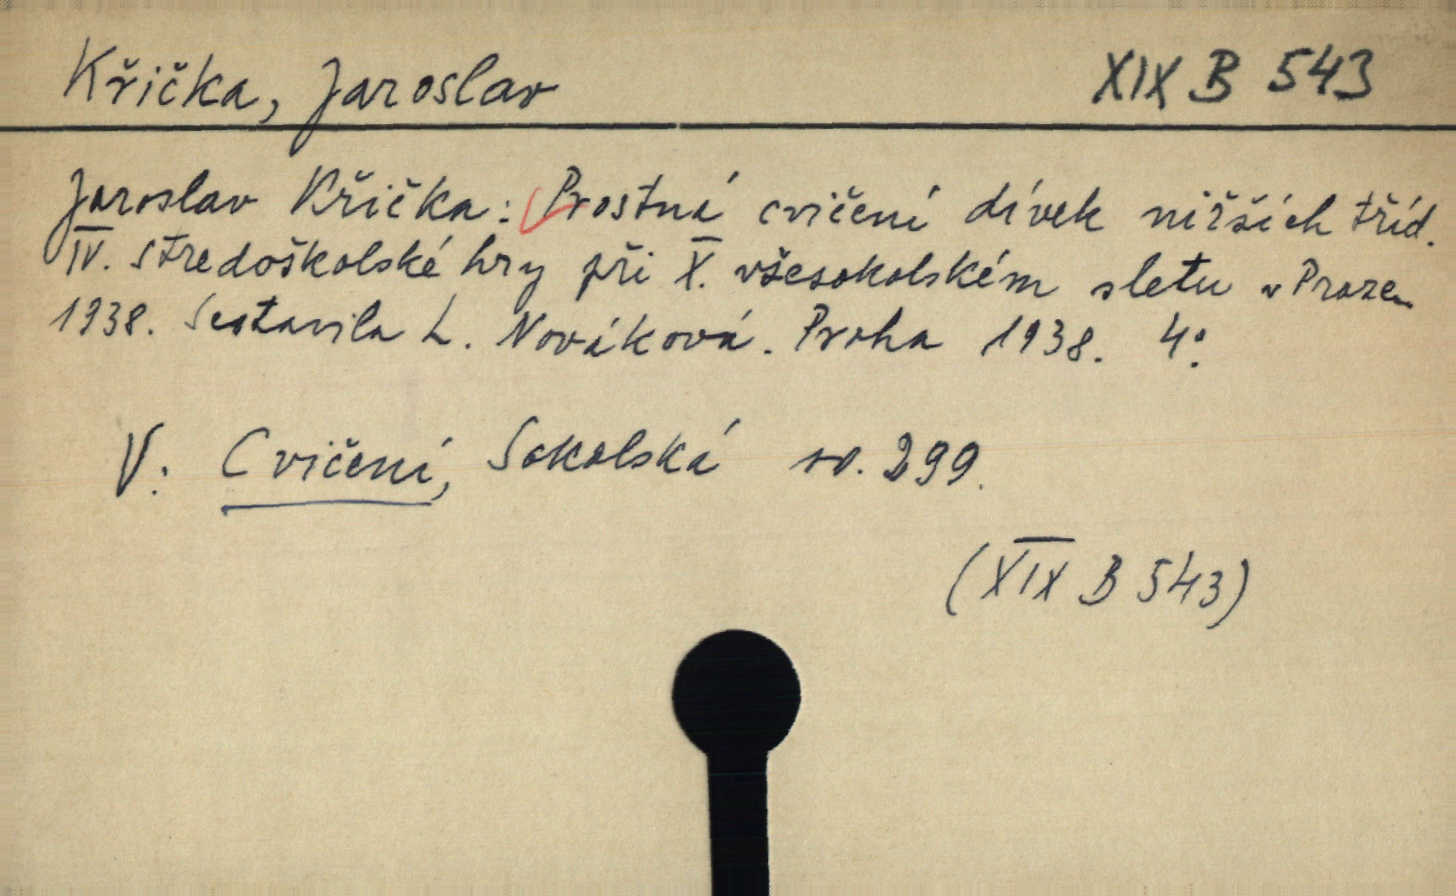 Křička, Jaroslav XIX B 543
Jaroslav Křička: Prostná cvičení dívek nižších tříd.
IV. středoškolské hry při X. všesokolském sletu v Praze
1938. Sestavila L. Nováková. Praha 1938. 4°.
V: Cvičení, Sokolská sv. 299.
(XIX B 543)